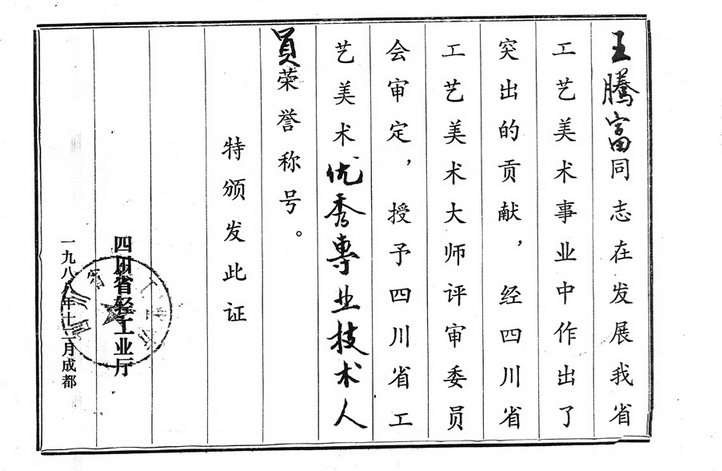 王騰富同志在发展我省
工艺美术事业中作出了
突出的贡献，经四川省
工艺美术大师评审委员
会审定，授予四川省工
艺美术优秀專业技术人
員荣誉称号。
特颁发此证
四川省轻工业厅
一九八八年十二月成都